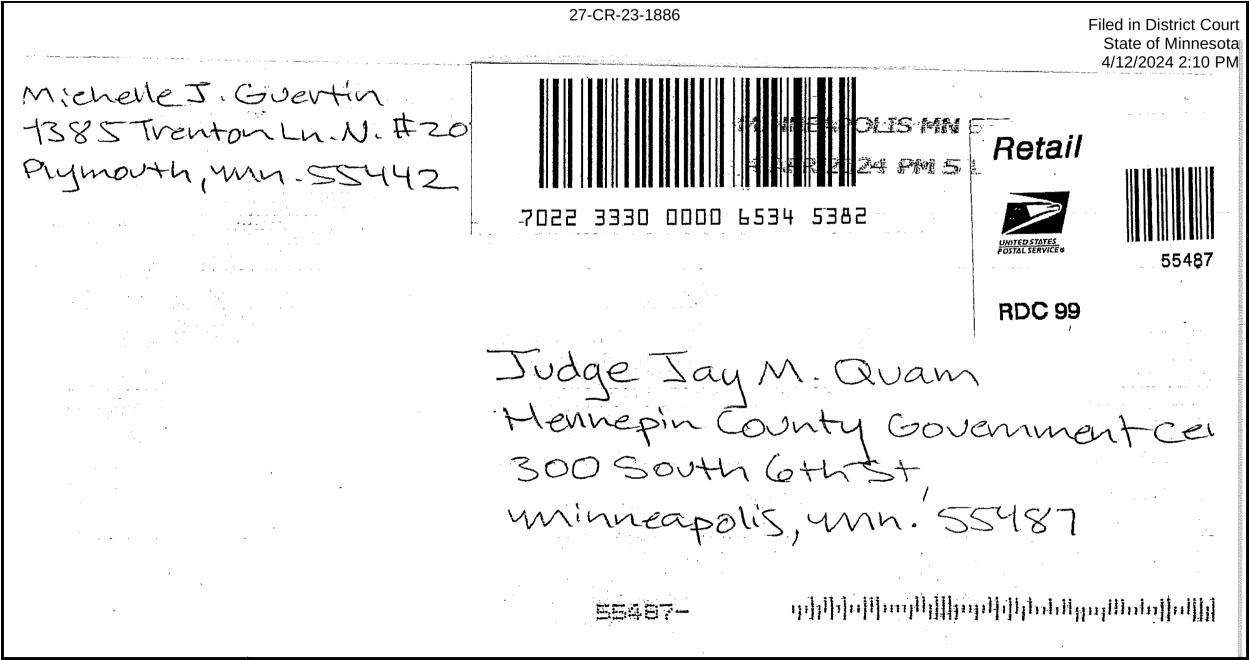 27-CR-23-1886
Filed in District Court
State of Minnesota
4/12/2024 2:10 PM
Michelle J. Guertin
1385 Trenton Ln. N. #20
Plymouth, Mn. 55442
MINNEAPOLIS MN
APR 2024 PM 5 L
7022 3330 0000 6534 5382
Retail
UNITED STATES
POSTAL SERVICE®
55487
RDC 99
Judge Jay M. Quam
Hennepin County Government Cen
300 South 6th St,
Minneapolis, Mn. 55487
55487-